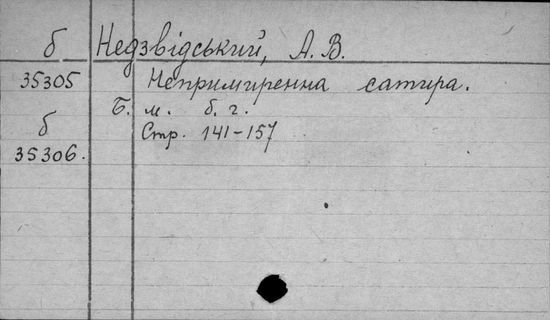 б Недзвідський, А. В.
35305 Непримиренна сатира.
Б. м. б. г.
б Стр. 141-157
35306.